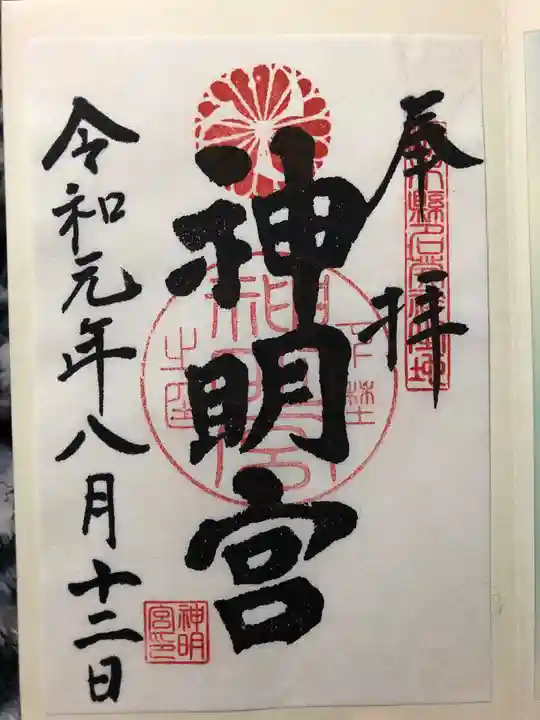 奉拝
神明宮
令和元年八月十二日
神明
宮印